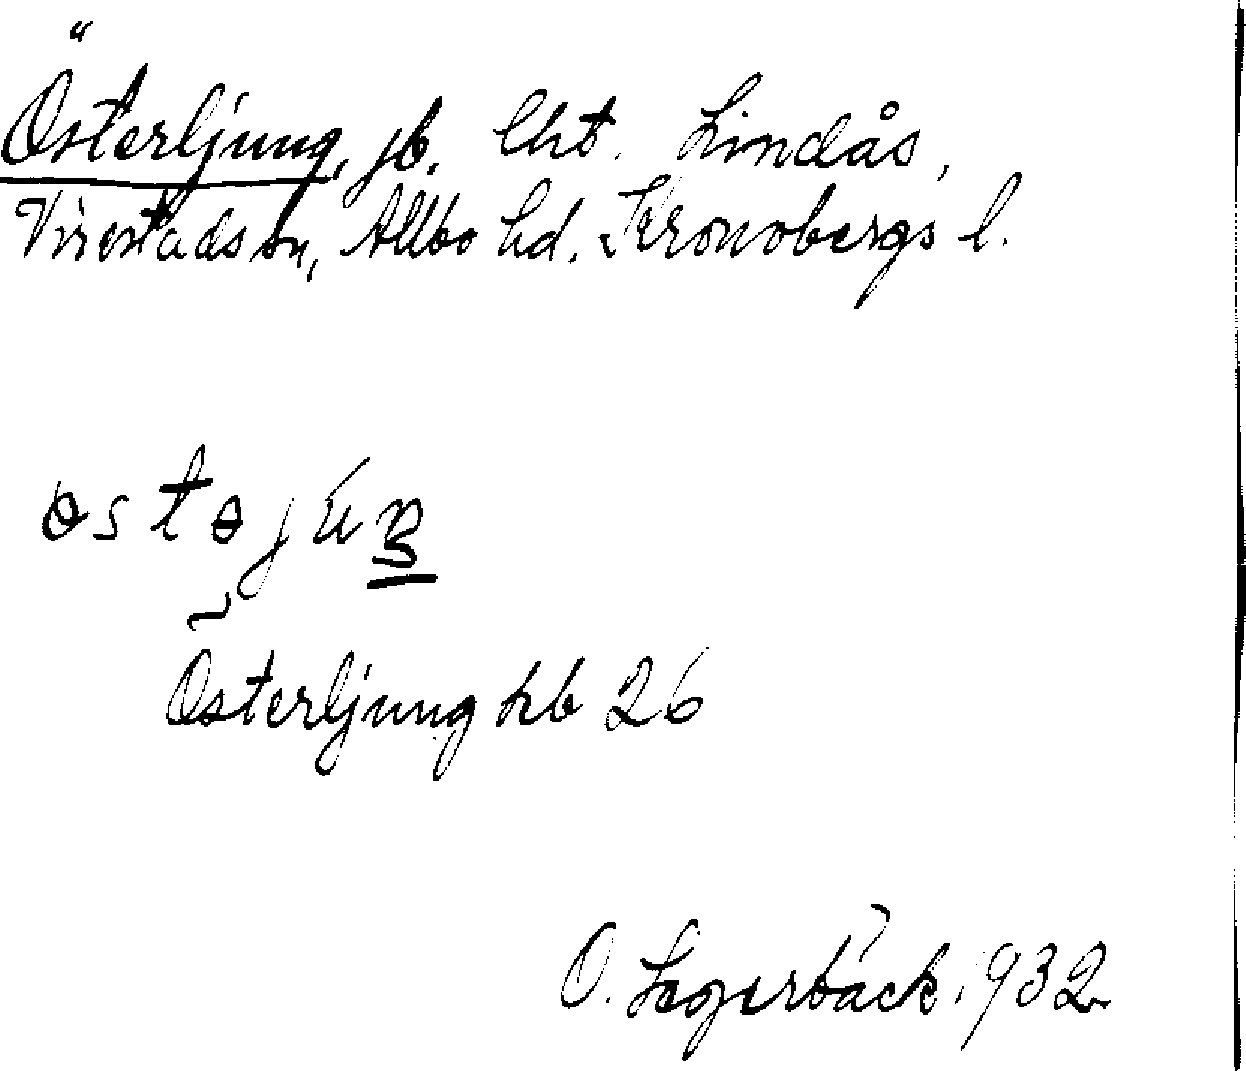 Österljung, jb. lht. Lindås,
Virestads sn, Allbo hd. Kronobergs l.
Österljung hb 26
O. Lagerbäck. 1932